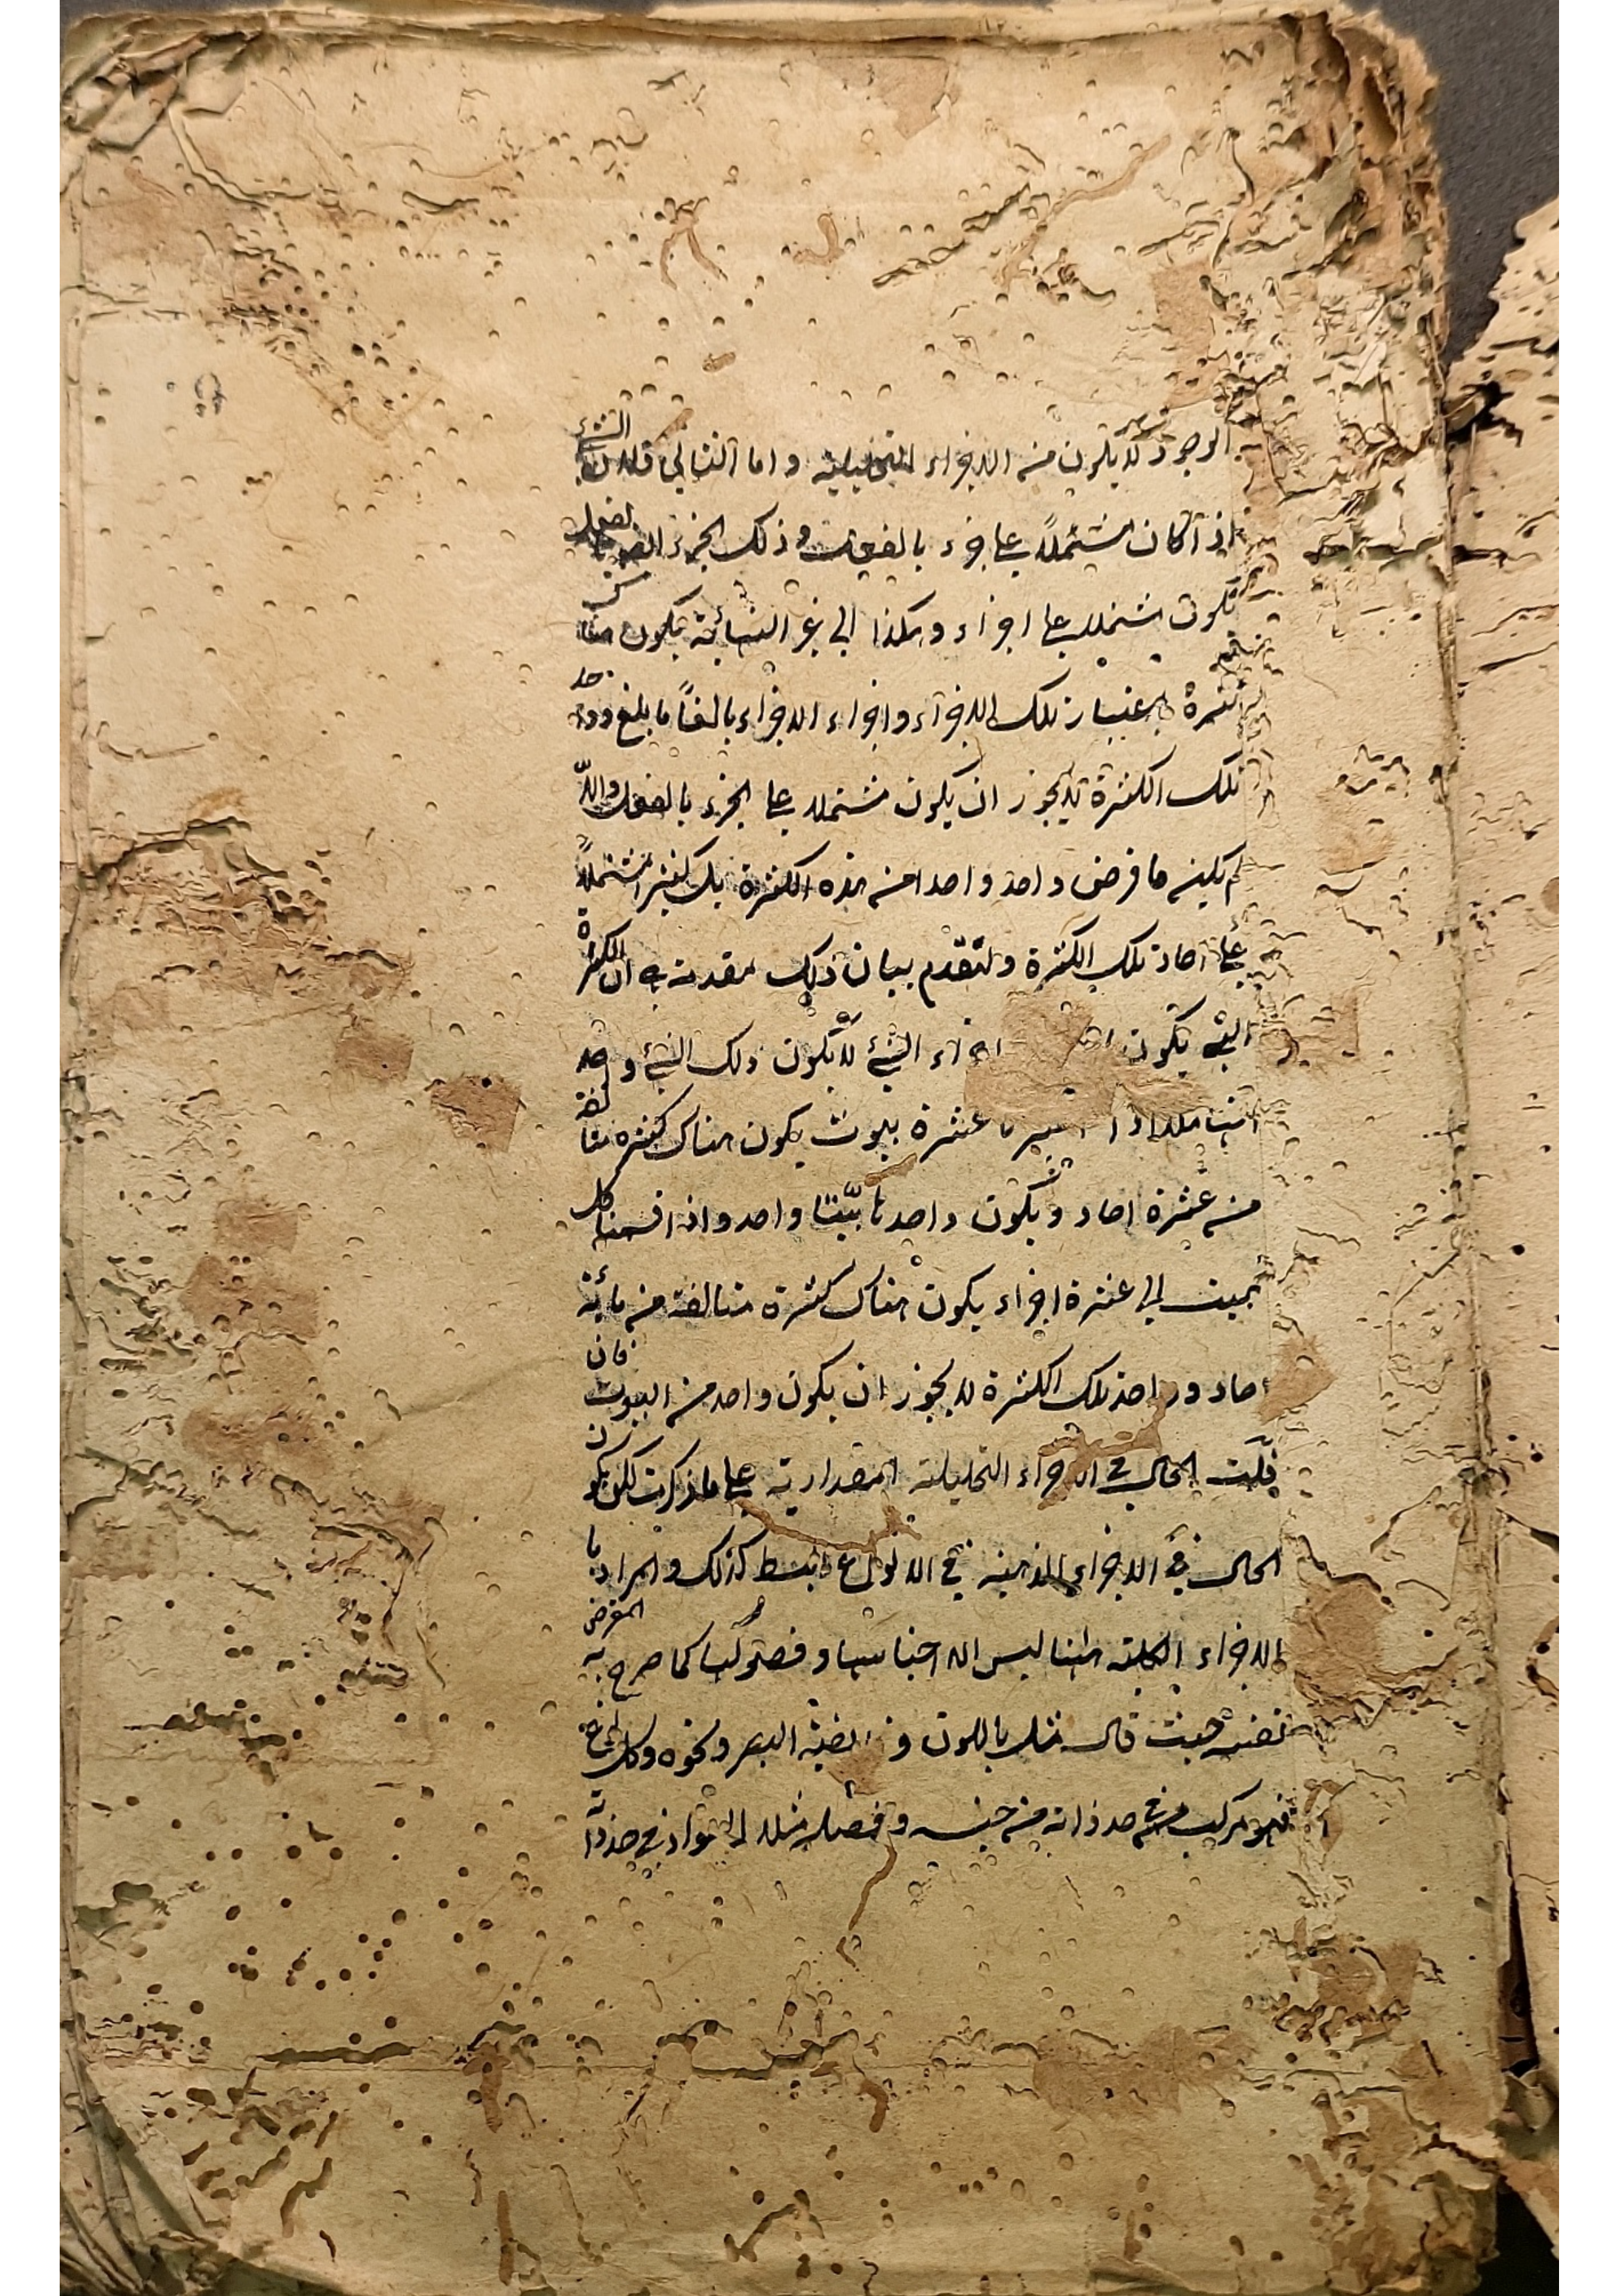 الوجود لا يكون من الاجزاء التحليلية و اما الثاني فلان الشئ
اذا كان مشتملاً على جزء بالفعل و ذلك الجزء بالفعل
يكون مشتملا على اجزاء و هكذا الى غير النهاية يكون هناك
كثرة باعتبار تلك الاجزاء و اجزاء الاجزاء بالغاً ما بلغ و واحد
تلك الكثرة لا يجوز ان يكون مشتملا على الجزء بالفعل والّا
لم يكن ما فرض واحد واحدا من هذه الكثرة بل كثيرا مشتملاً
على احاد تلك الكثرة و لنقدّم بيان ذلك مقدمة هي ان الكثرة
التي يكون اجزاء الشئ لا يكون ذلك الشئ واحد
عشرة بيوت يكون هناك كثرة متالفة
من عشرة احاد و يكون واحدها بيّتا واحد و اذا قسمنا كل
بيت الى عشرة اجزاء يكون هناك كثرة متالفة من مائة
احاد و واحد تلك الكثرة لا يجوز ان يكون واحد من البيوت فان
قلت الحال في الاجزاء التحليلية المقدارية على ما ذكرت لكن يكون
الحال في الاجزاء الذهنية في الانواع كذلك و المراد با
الاجزاء الكلية هٰهنا ليس الا اجناسها و فصولها كما صرح به المعرض
حيث قال مثل باللون و البصر و نحوه و كل
فهو مركب في حد ذاته من جنس و فصل مثلا السواد في حد ذاته